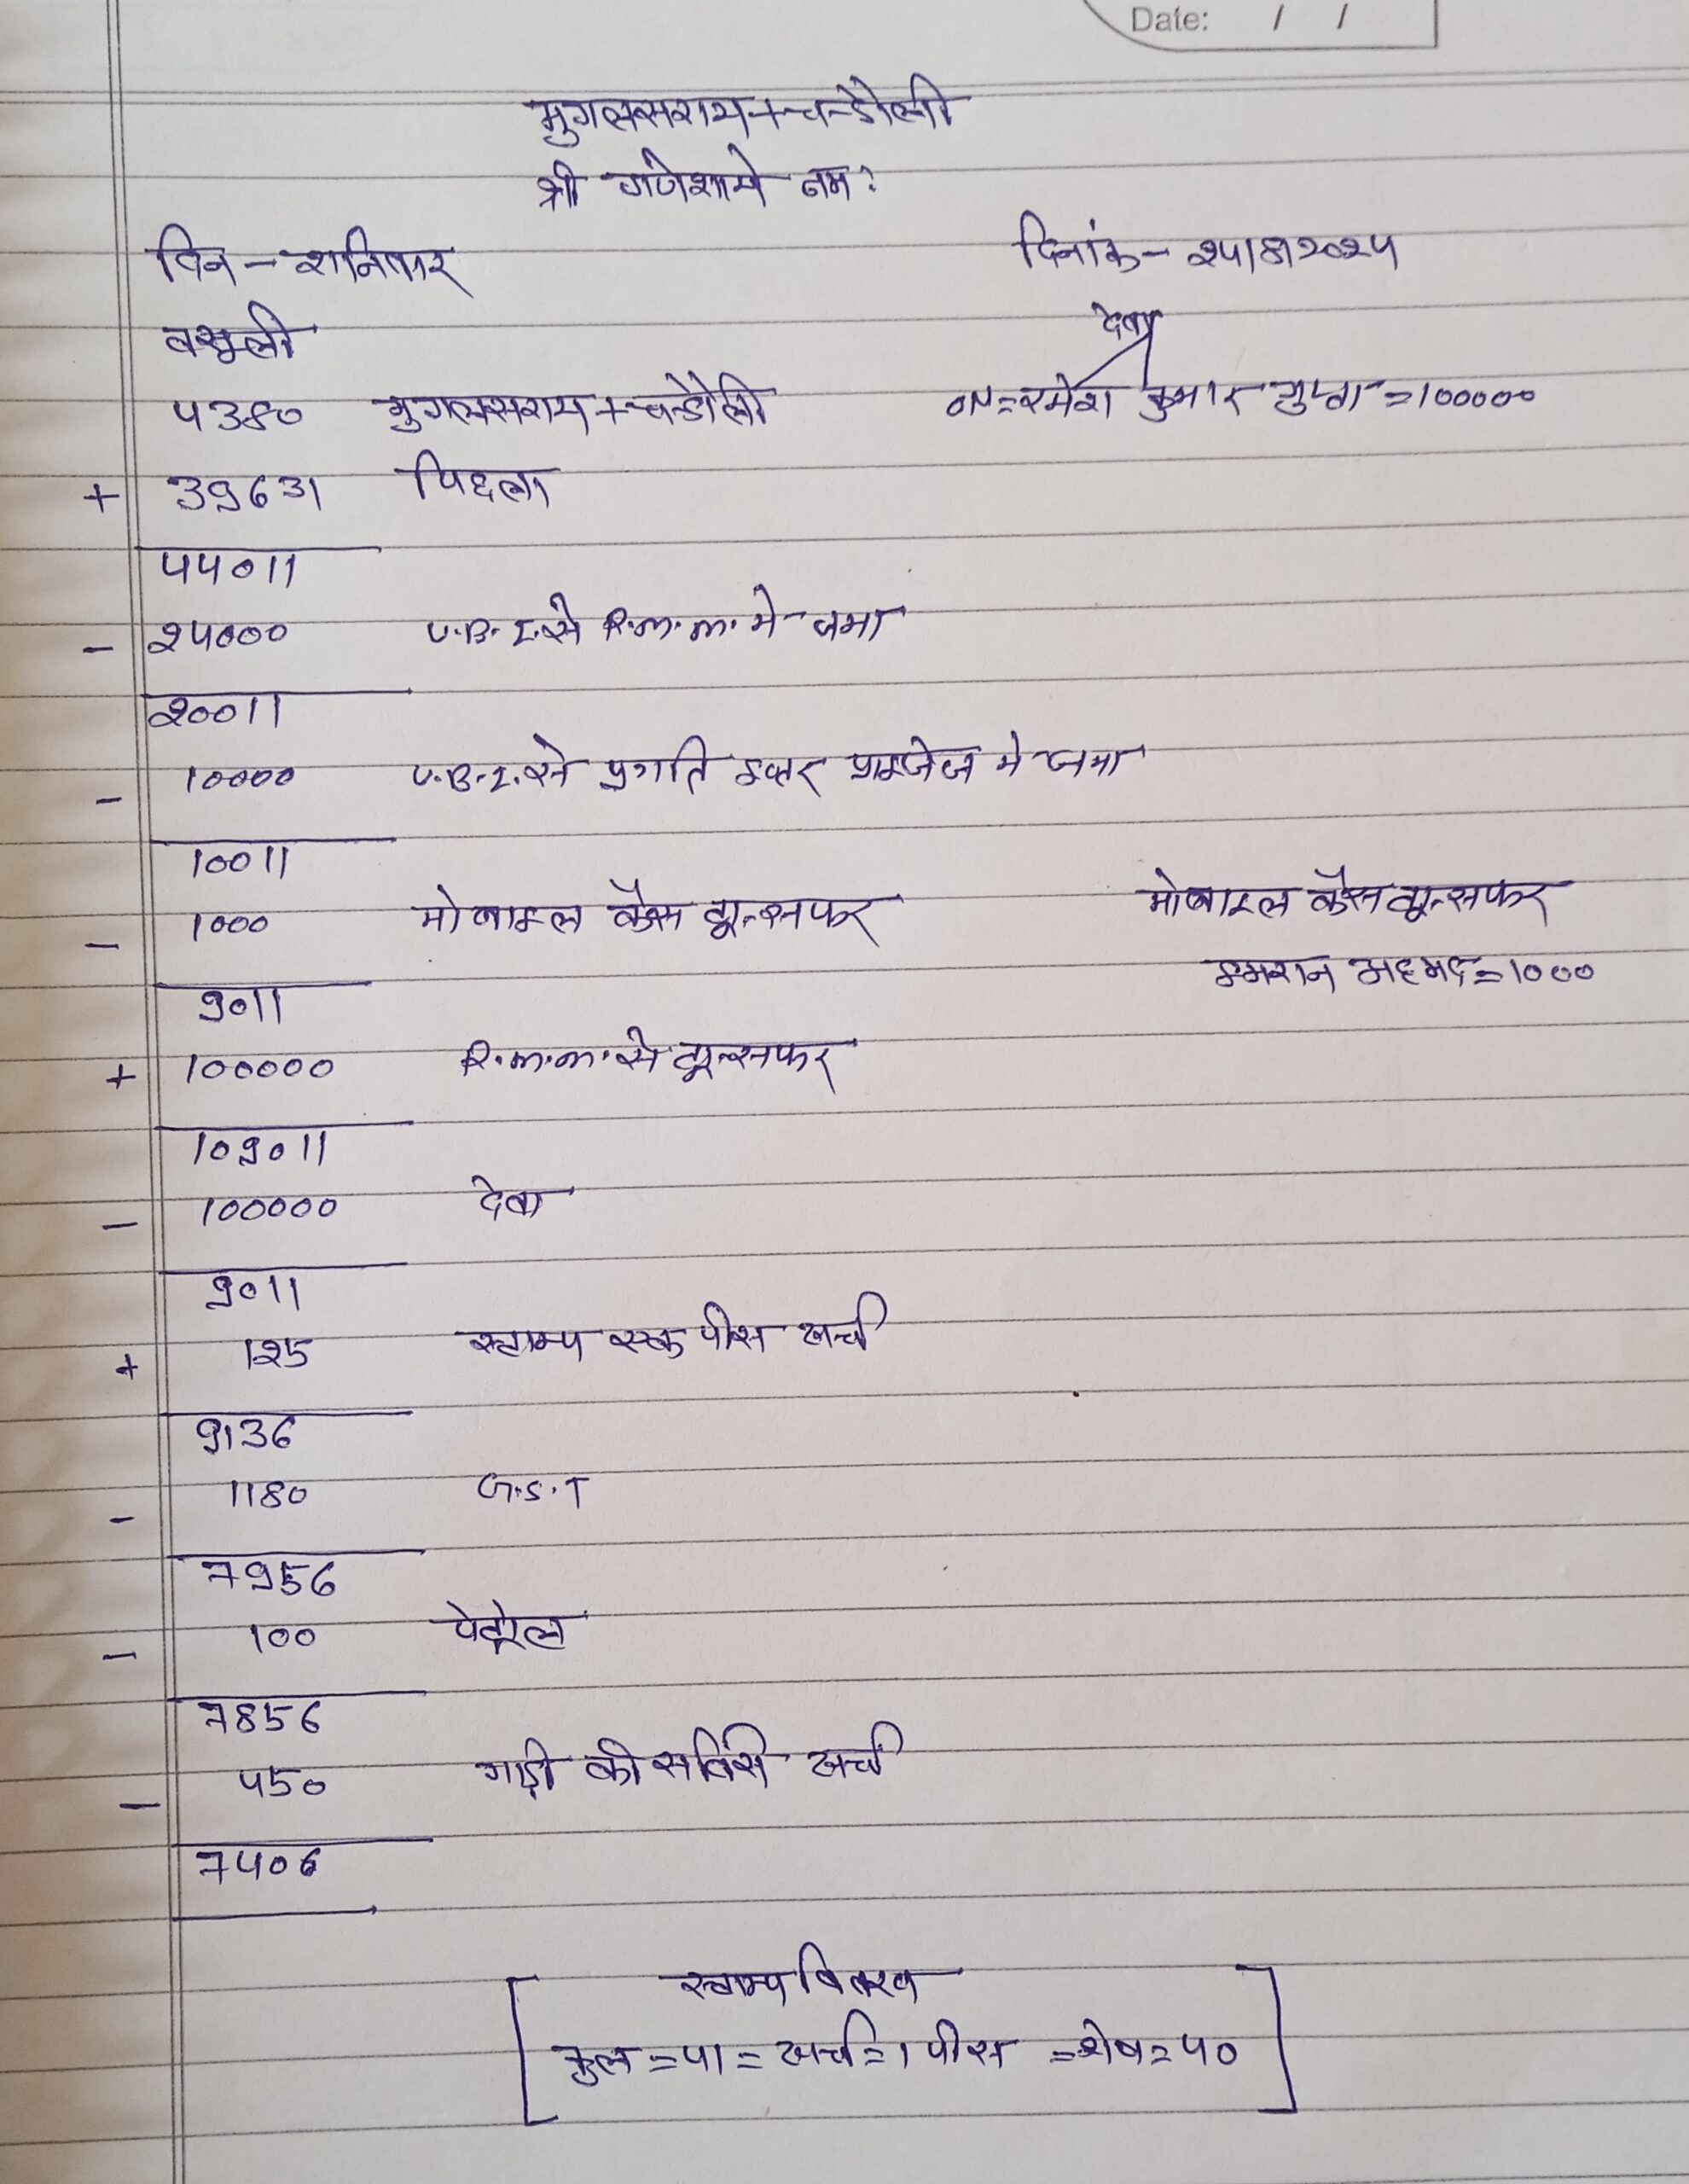 Date: / /
मुगलसराय+चन्डौली
श्री गणेशाये नम:
दिन - शनिवार दिनांक - 24/8/2024
वसूली
देवा
4380 मुगलसराय+चन्डौली ON = रमेश कुमार गुप्ता = 100000
+ 39631 पिछला
44011
- 24000 U.B.I. से R.M.M. मे जमा
20011
- 10000 U.B.I. से प्रगति इन्टर प्राइजेज मे जमा
10011
- 1000 मोबाइल कैस ट्रान्सफर मोबाइल कैस ट्रान्सफर
9011 इमरान अहमद = 1000
+ 100000 R.M.M. से ट्रान्सफर
109011
- 100000 देवा
9011
+ 125 स्टाम्प एक पीस खर्च
9136
- 1180 G.S.T
7956
- 100 पेट्रोल
7856
- 450 गाड़ी की सर्विस खर्च
7406
स्टाम्प विवरण
कुल = 41 = खर्च = 1 पीस = शेष = 40